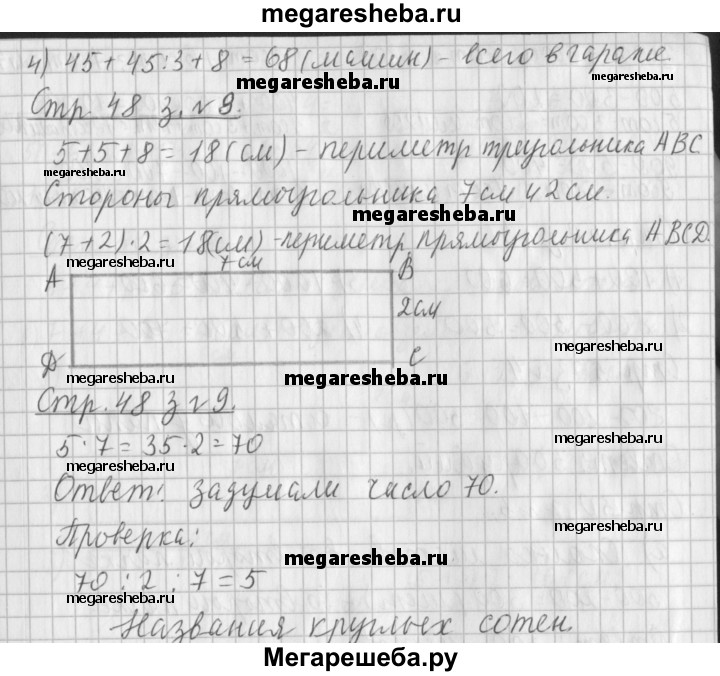 megaresheba.ru
4) 45 + 45:3 + 8 = 68 (машин) - всего в гараже.
megaresheba.ru
Стр. 48 з. №9.
megaresheba.ru
5+5+8 = 18 (см) - периметр треугольника ABC
megaresheba.ru
Стороны прямоугольника 7см и 2см.
megaresheba.ru
(7+2)·2=18(см) - периметр прямоугольника ABCD.
megaresheba.ru
7см
A B
2см
D C
megaresheba.ru
megaresheba.ru
megaresheba.ru
Стр. 48 з №9.
5·7=35·2=70
megaresheba.ru
megaresheba.ru
Ответ: задумали число 70.
megaresheba.ru
Проверка:
megaresheba.ru
70 : 2 : 7 = 5
megaresheba.ru
megaresheba.ru
Названия круглых сотен.
Мегарешеба.ру